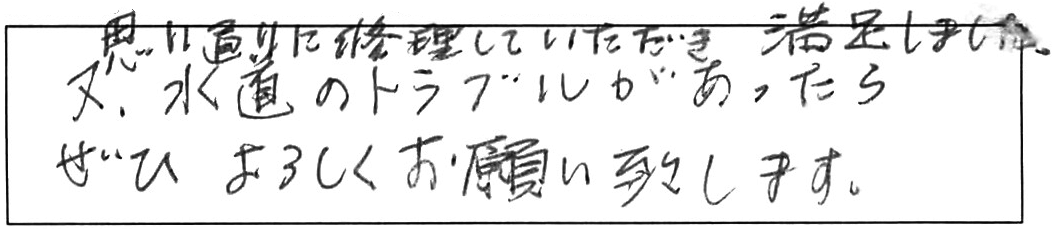 思い通りに修理していただき 満足しました。
又、水道のトラブルがあったら
ぜひ よろしくお願い致します。